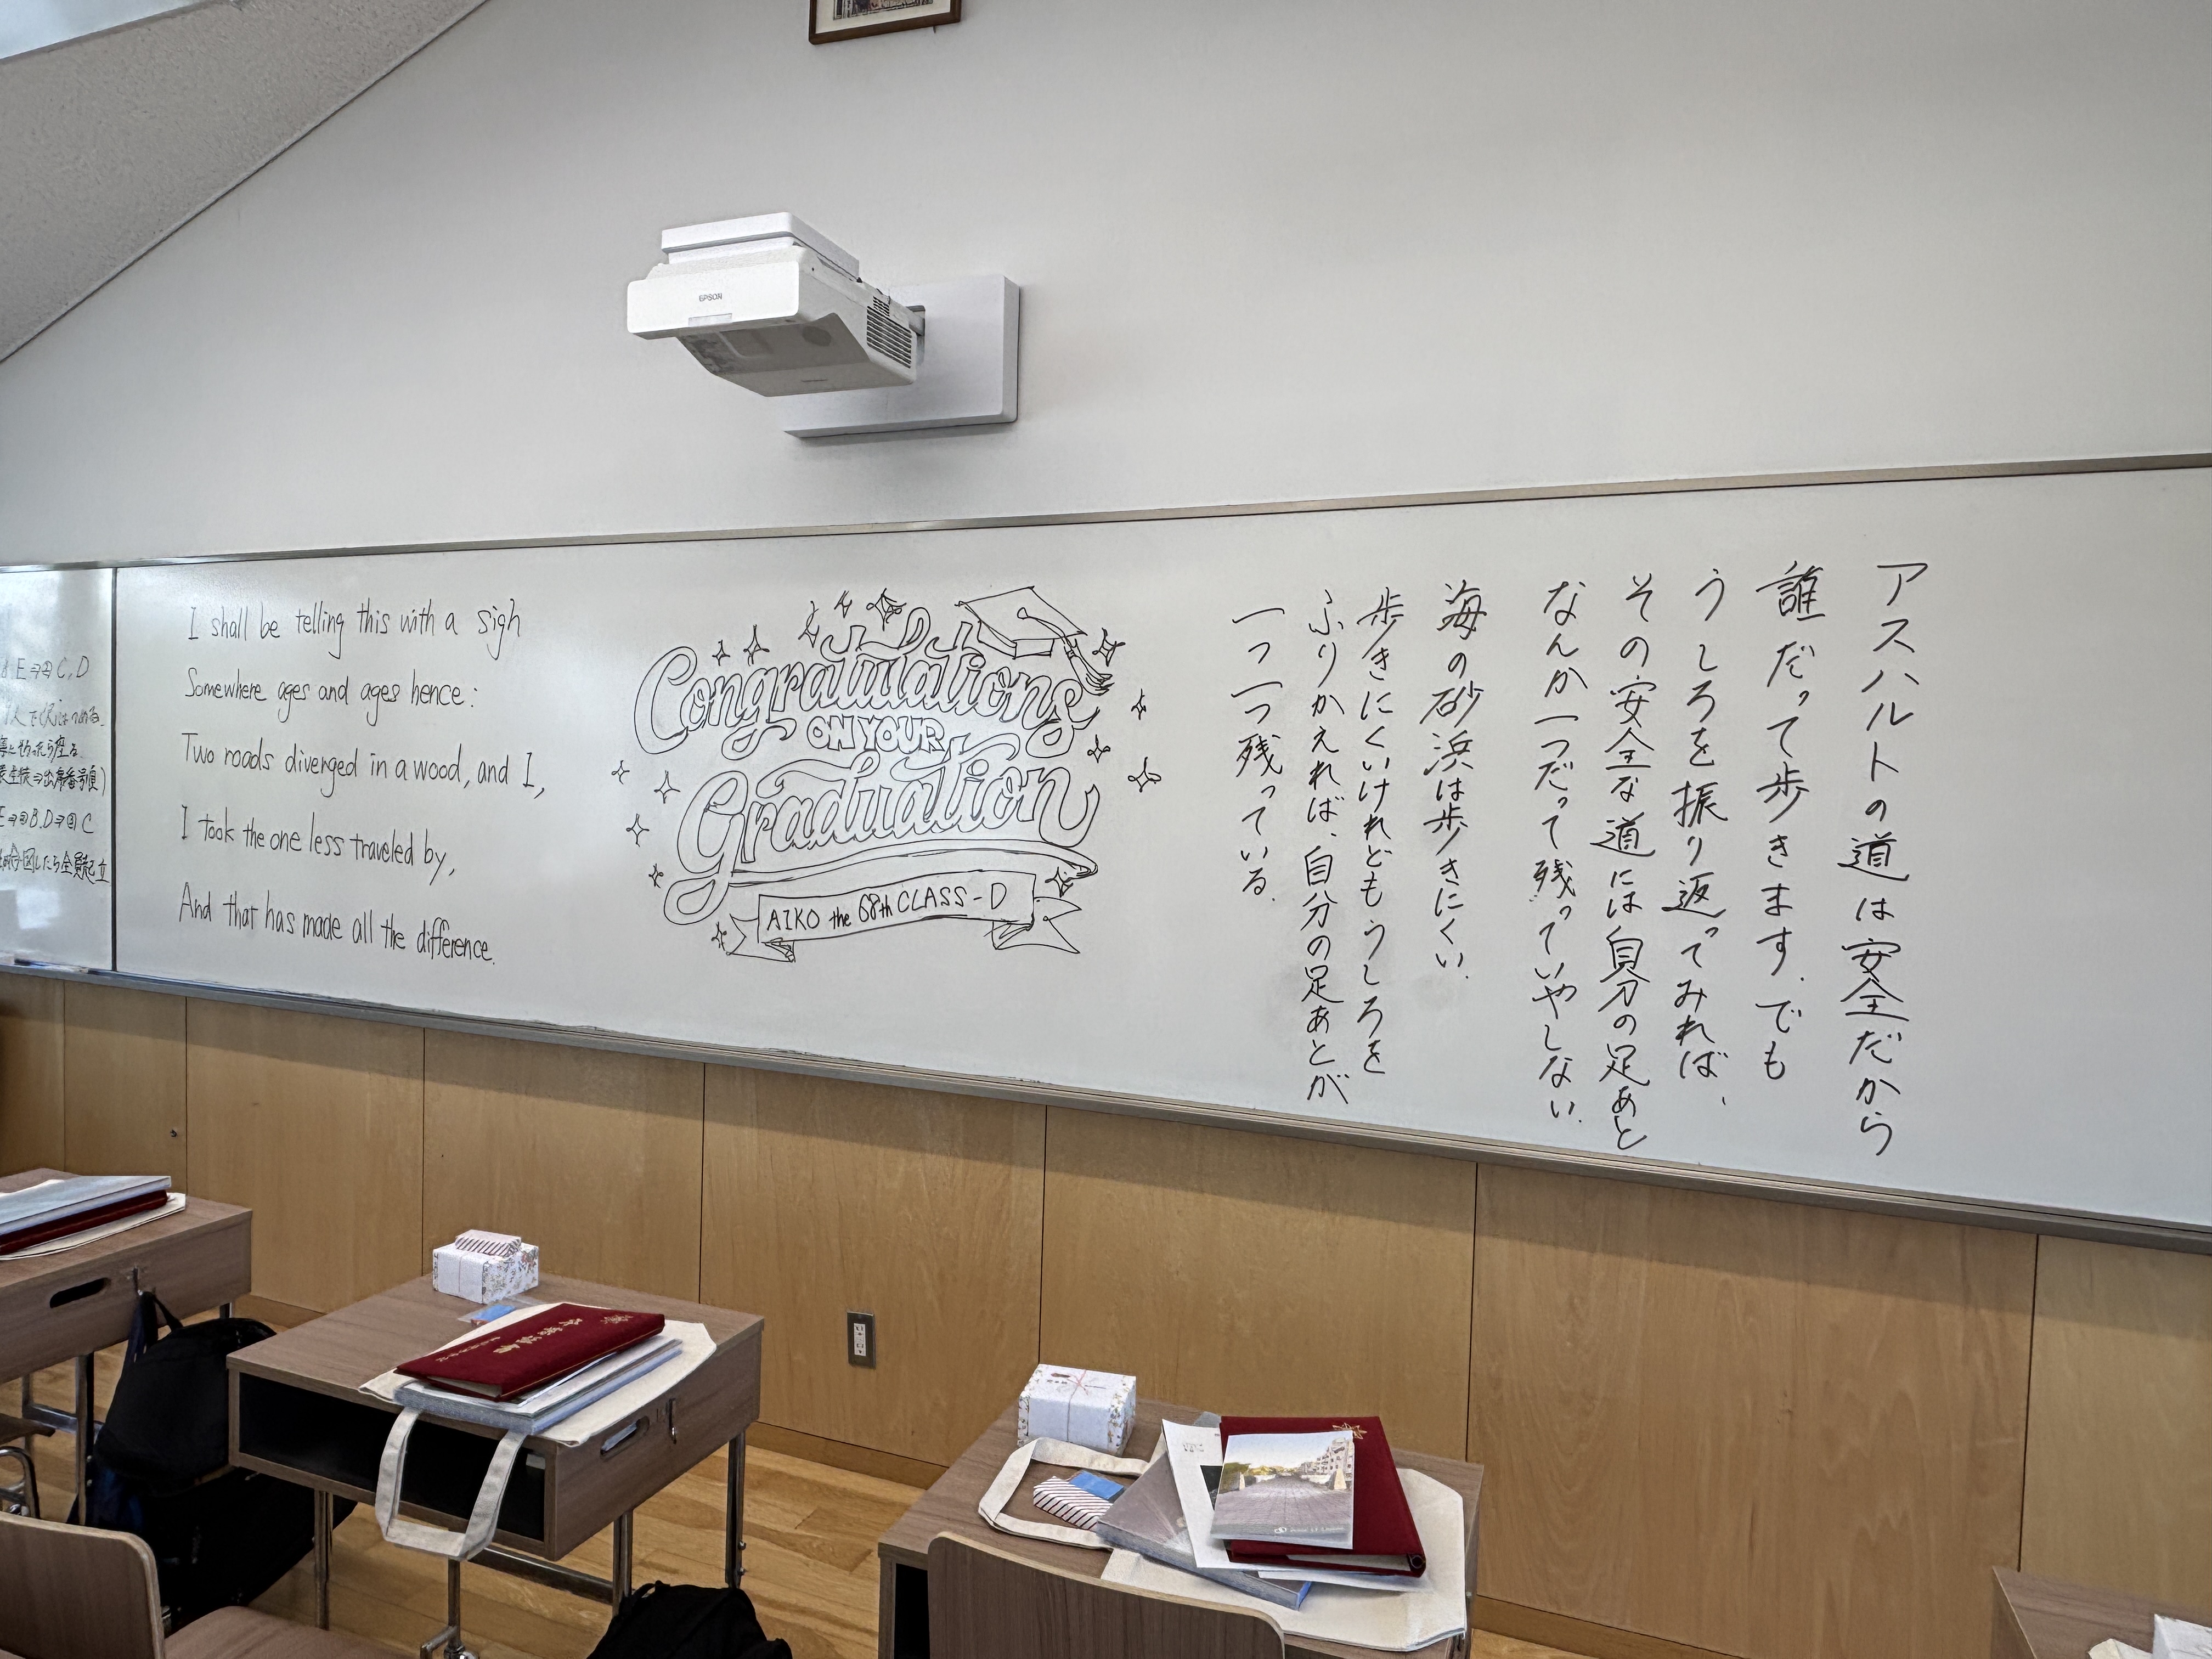 EPSON
I shall be telling this with a sigh
Somewhere ages and ages hence:
Two roads diverged in a wood, and I,
I took the one less traveled by,
And that has made all the difference.
Congratulations
ON YOUR
Graduation
AIKO the 68th CLASS-D
アスハルトの道は安全だから
誰だって歩きます。でも
うしろを振り返ってみれば、
その安全な道には自分の足あと
なんか一つだって残っていやしない。
海の砂浜は歩きにくい。
歩きにくいけれどもうしろを
ふりかえれば、自分の足あとが
一つ一つ残っている。
E⇒④C,D
E⇒③B,D⇒④C
したら全員起立